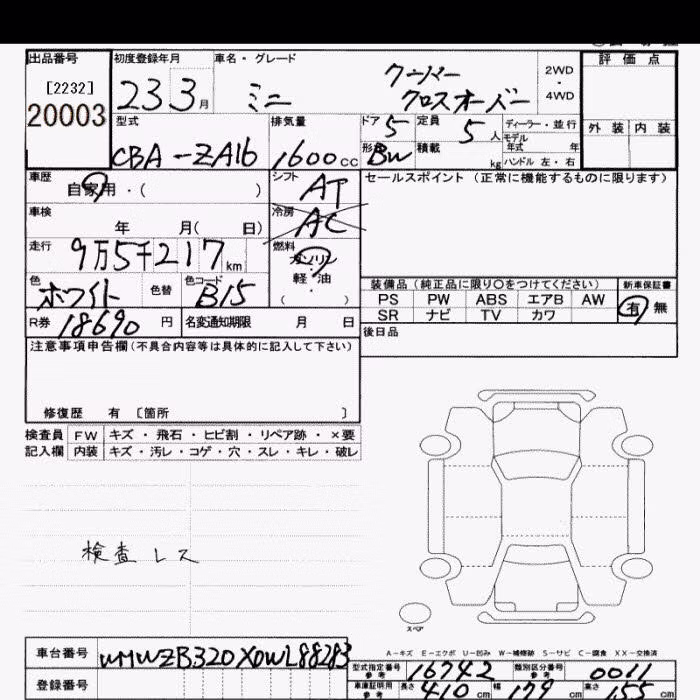 出品番号
[2232]
20003
初度登録年月
23 3月
車名・グレード
ミニ
クーパー
クロスオーバー
2WD
・
4WD
評価点
外装 内装
型式
CBA-ZA16
排気量
1600cc
ドア 5
定員 5人
形状 BW
積載 kg
ディーラー・並行
モデル年式 年
ハンドル 左・右
車歴
自家用・( )
シフト
AT
セールスポイント (正常に機能するものに限ります)
車検
年 月( 日)
冷房
AC
走行
9万5千217km
燃料
ガソリン
軽・油
( ・ )
色
ホワイト
色替
色コード
B15
装備品 (純正品に限り○をつけてください)
PS PW ABS エアB AW
SR ナビ TV カワ
新車保証書
有 無
R券 18690円
名変通知期限 月 日
後日品
注意事項申告欄(不具合内容等は具体的に記入して下さい)
修復歴 有 〔箇所 〕
検査員 FW キズ・飛石・ヒビ割・リペア跡・×要
記入欄 内装 キズ・汚レ・コゲ・穴・スレ・キレ・破レ
検査レス
スペア
A-キズ E-エクボ U-凹み W-補修跡 S-サビ C-腐食 XX-交換済
車台番号
WMWZB320X0WL88283
登録番号
型式指定番号
参考
16742
類別区分番号
参考
0011
車庫証明用
参考
長さ 410cm
幅 179cm
高さ 155cm